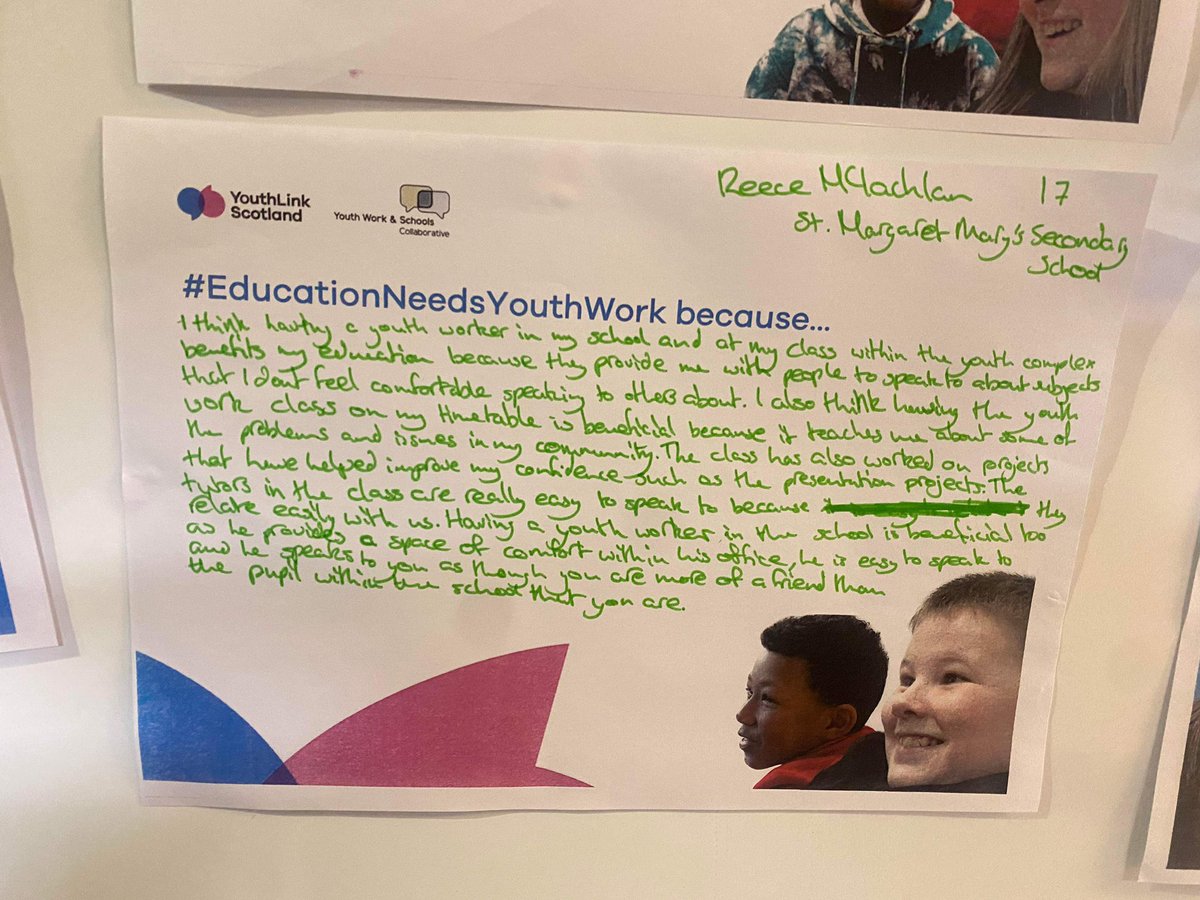 YouthLink
Scotland
Youth Work & Schools
Collaborative
Reece McLachlan 17
St. Margaret Mary's Secondary
School
#EducationNeedsYouthWork because...
I think having a youth worker in my school and at my class within the youth complex
benefits my education because they provide me with people to speak to about subjects
that I dont feel comfortable speaking to others about. I also think having the youth
work class on my timetable is beneficial because it teaches me about some of
the problems and issues in my community. The class has also worked on projects
that have helped improve my confidence such as the presentation projects. The
tutors in the class are really easy to speak to because they
relate easily with us. Having a youth worker in the school is beneficial too
as he provides a space of comfort within his office, he is easy to speak to
and he speaks to you as though you are more of a friend than
the pupil within the school that you are.